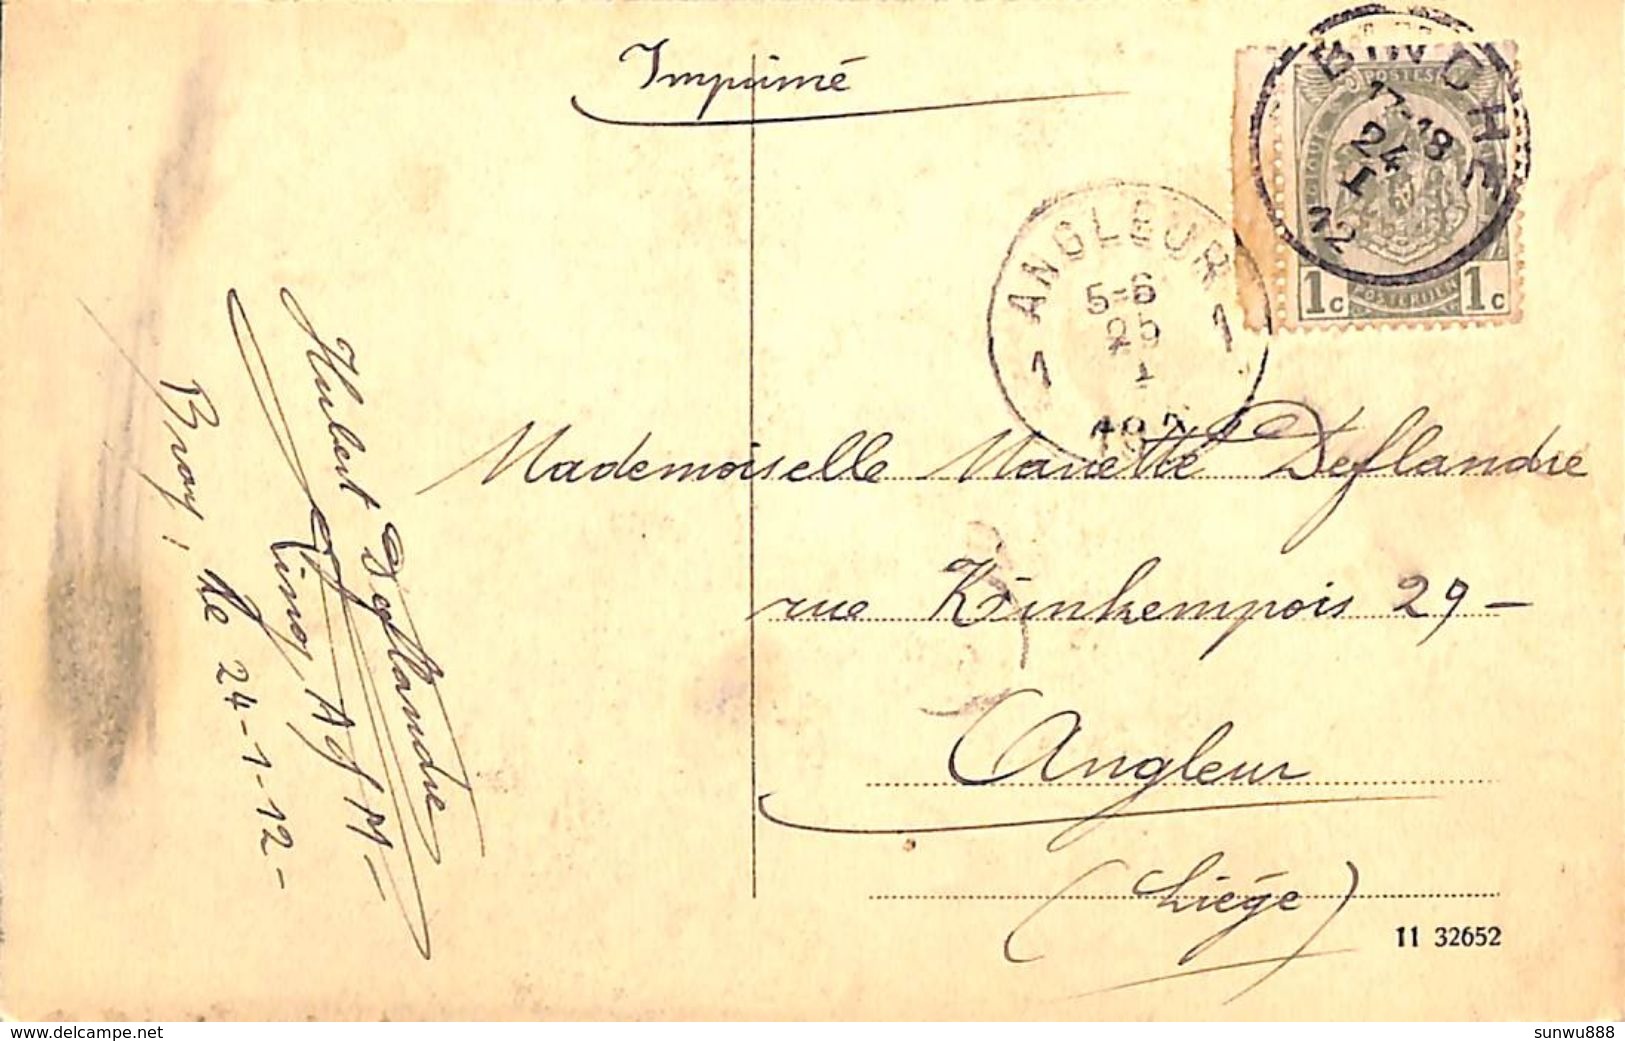 Imprimé
BINCHE
17-18
24
I
12
BELGIQUE
POSTES
1c POSTERIJEN 1c
ANGLEUR
5-6
25
1
1 1
Mademoiselle Mariette Deflandre
rue Kinkempois 29-
Angleur
(Liége)
11 32652
Hubert Deflandre
Bray, le 24-1-12-
delcampe.net
sunwu888